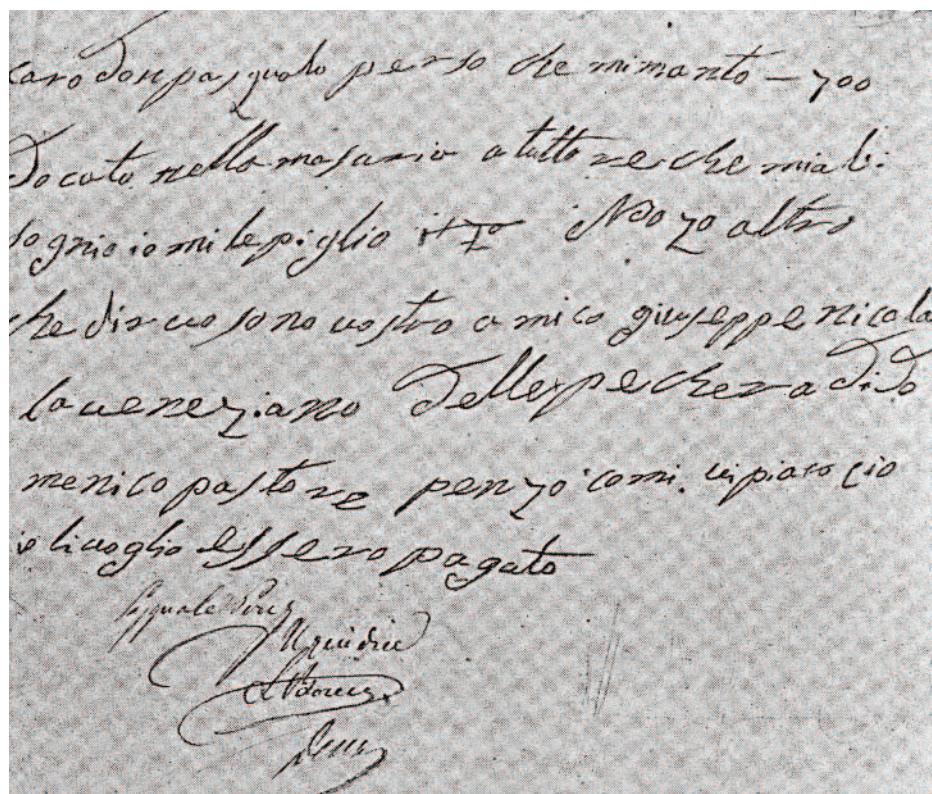 caro don pasqualo perso che mi manto – 700
Docato nella masaria a tutto re che mia bi
sognio io mi le piglio Non zo altro
che dir vo sono vostro amico giuseppe nicola
la veneziano Delle pechera di do
menico pastore penzo comi vi piaco cio
io li voglio essero pagato
Pasquale
Il giudice